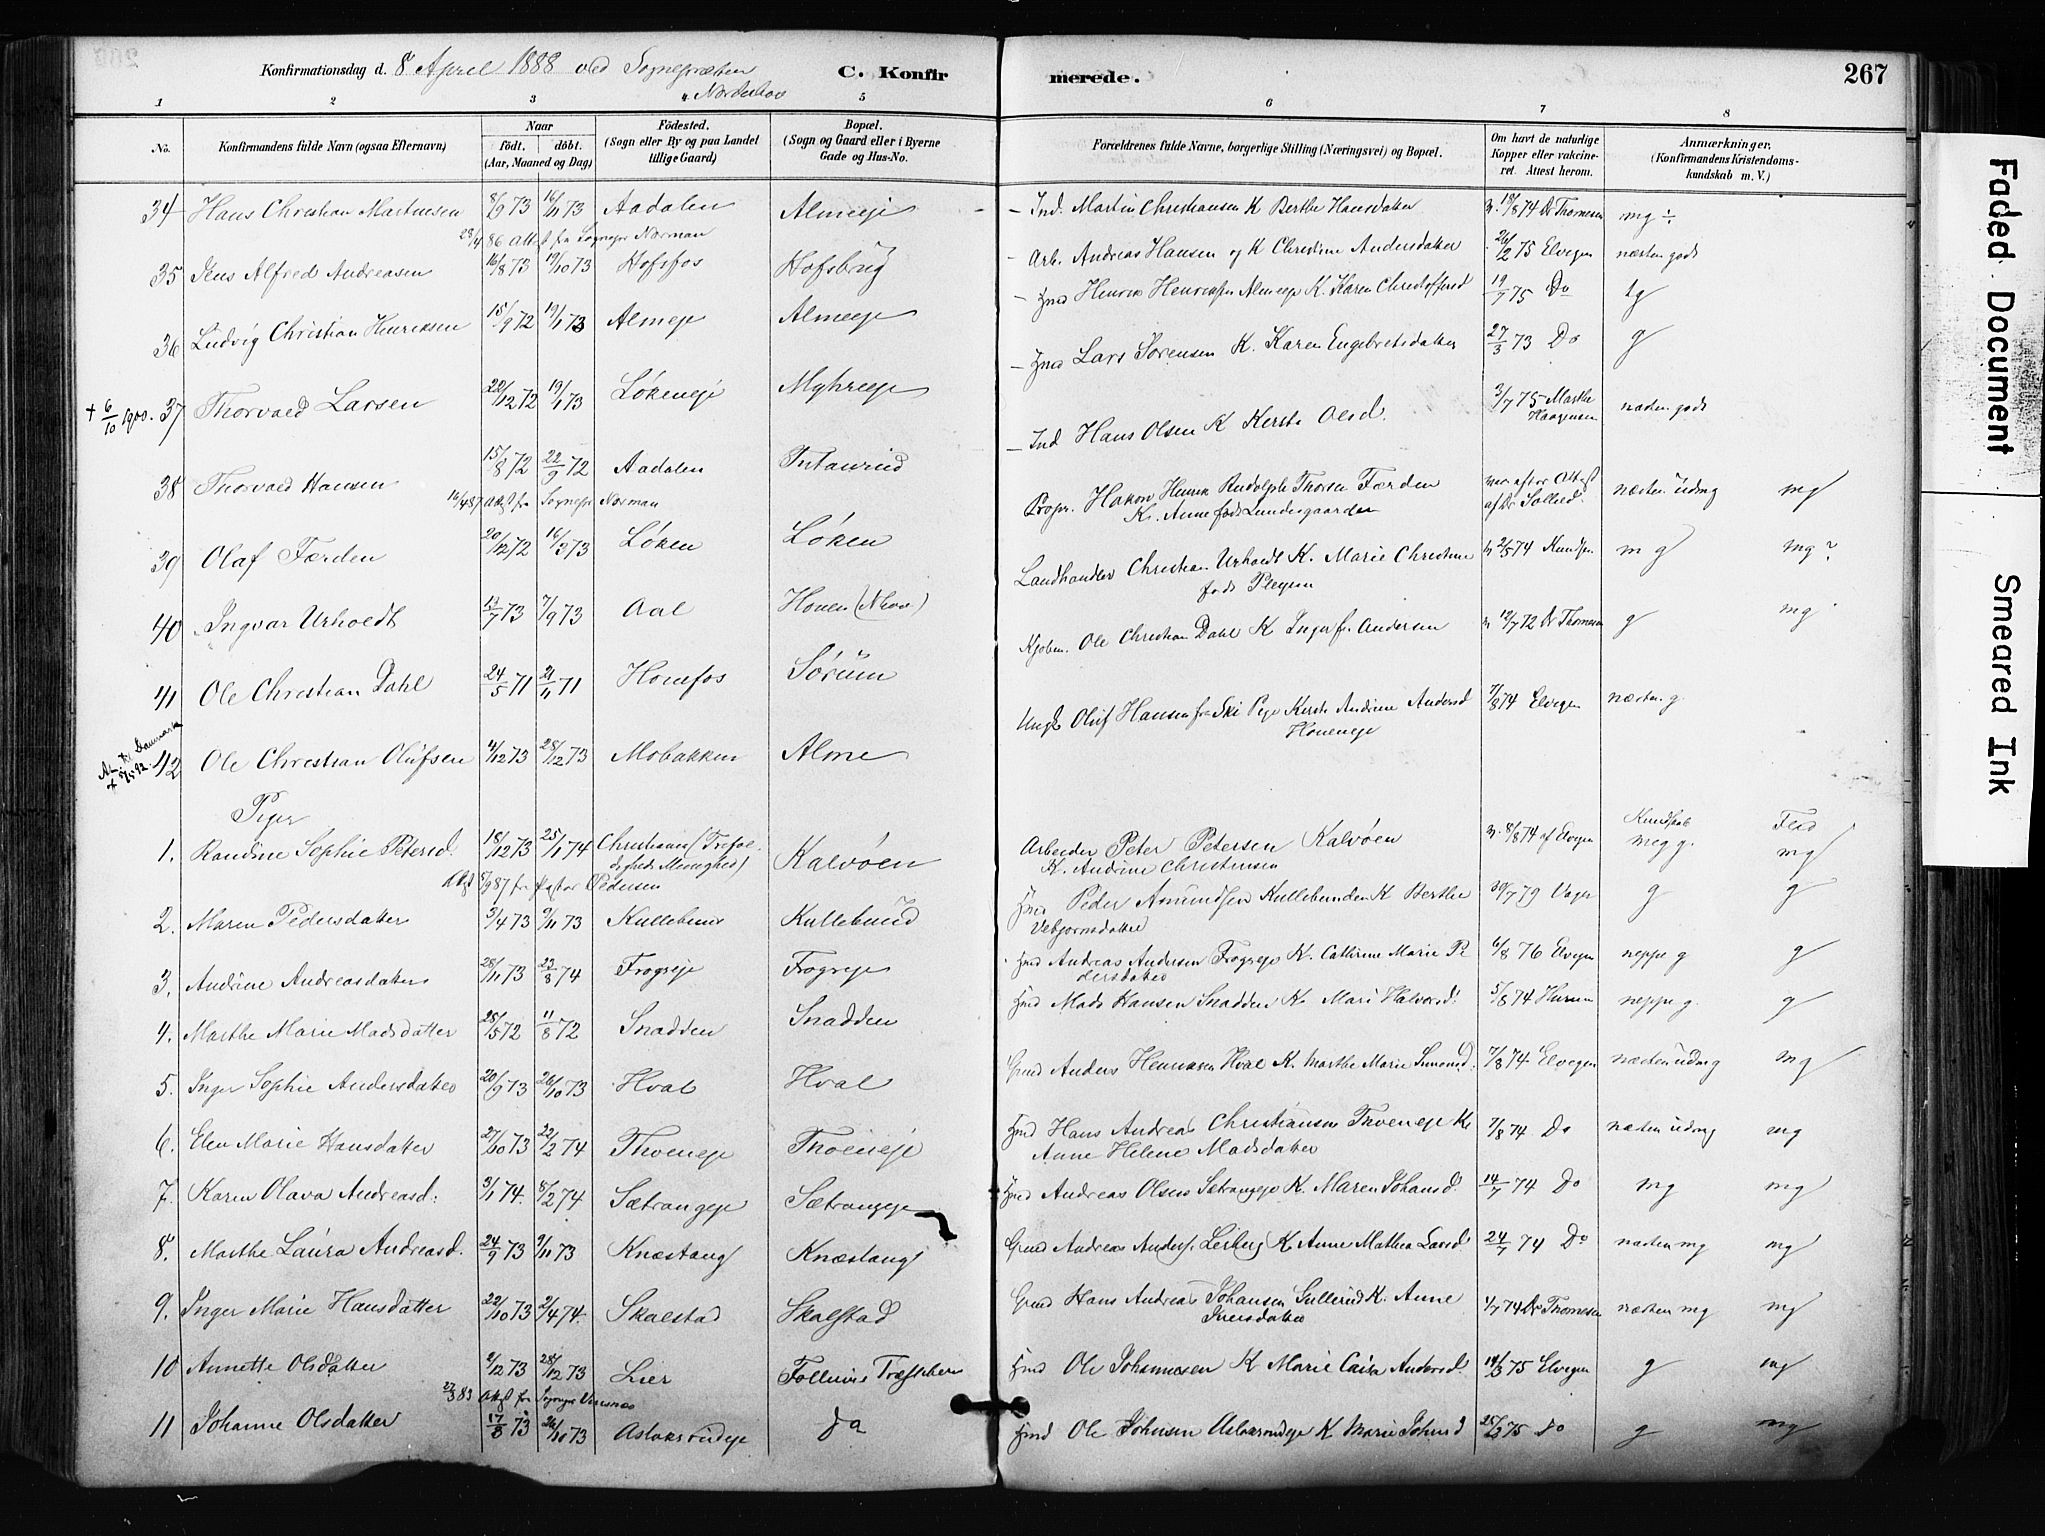 Konfirmationsdag d. 8 April 1888 ved Sognepræsten C. Konfir merede. 267
Norderhov
1 2 3 4 5 6 7 8
No.
Konfirmandens fulde Navn (ogsaa Efternavn)
Naar
født. døbt.
(Aar, Maaned og Dag)
Fødested.
(Sogn eller By og paa Landet
tillige Gaard)
Bopæl.
(Sogn og Gaard eller i Byerne
Gade og Hus-No.
Forældrenes fulde Navne, borgerlige Stilling (Næringsvei) og Bopæl.
Om havt de naturlige
Kopper eller vakcine-
ret. Attest herom.
Anmærkninger.
(Konfirmandens Kristendoms-
kundskab m. V.)
34 Hans Christian Martinsen 8/9 73 16/11 73 Aadalen Almeeje Ind. Martin Christiansen K Berthe Hansdatter 18/8 74 Dr Thomesen mg
23/4 86 Att. fra Sognepr Norman
35 Jens Alfred Andreasen 16/8 73 19/10 73 Hofsfos Hofsbrug Arb. Andreas Hansen og K Christine Andersdatter 26/2 75 Elvegen næsten godt
36 Ludvig Christian Henriksen 15/9 72 19/1 73 Almeje Almeeje Hmd Henrik Henriksen Almeeje K. Karen Christoffersd 19/7 75 Do tg
+ 6/10 1900. 37 Thorvald Larsen 22/12 72 19/1 73 Løkeneje Myhreeje Hmd Lars Sørensen K. Karen Engebretsdatter 27/3 73 Do g
38 Thorvald Hansen 15/8 72 22/9 72 Aadalen Ind Hans Olsen K Kersti Olsd. 3/7 75 Marthe Haagensen næsten godt
16/4 87 Att. fra Sognepr Norman
39 Olaf Færden 20/12 72 16/3 73 Løken Løken Propr. Hakon Henrik Rudolph Thorsen Færden næsten udmg mg
K. Anne født Lundesgaarden
40 Ingvar Urholdt 11/7 73 7/9 73 Aal Honen (Nhov) Landhandler Christian Urholdt K. Marie Christine 2/5 74 Knudsen mg mg?
født
41 Ole Christian Dahl 24/5 71 21/11 71 Honefos Sørum Kjøbm. Ole Christian Dahl K Inger f. Andersen 19/7 72 Dr Thomesen g mg
42 Ole Christian Olufsen 4/12 73 28/12 73 Mobakken Alme Ungk Oluf Hansen fra Ski Pige Kersti Andrine Andersd 7/8 74 Elvegen næsten g.
Honeneje
Piger
Kundskab Flid
1. Randine Sophie Petersd. 18/12 73 25/1 74 Christiania (Trefoldigheds Menighed) Kalvøen Arbeider Peter Petersen Kalvøen 8/8 74 af Elvegen meg g. mg
K. Andrine Christensen
Att 8/9 87 fra Pastor Pedersen
2. Maren Pedersdatter 3/4 73 9/11 73 Kullebund Kullebund Hmd Peder Amundsen Kullebunden K Berthe 30/7 79 g g
Vebjornsdatter
3. Andrine Andreasdatter 28/11 73 23/8 74 Frogseje Frogseje Hmd Andreas Andersen Frogseje K. Cathrine Marie Pe 6/8 76 Elvegen neppe g g
dersdatter
4. Marthe Marie Madsdatter 25/5 72 11/8 72 Snadden Snadden Hmd Mads Hansen Snadden K. Mari Halvorsd. 5/8 74 neppe g. g
5. Inger Sophie Andersdatter 20/9 73 26/10 73 Hval Hval Gmd Anders Henriksen Hval K. Marthe Marie Simensd. 7/8 74 Elvegen næsten udmg mg
6. Elen Marie Hansdatter 27/10 73 22/2 74 Thoeneje Thoeneje Hmd Hans Andreas Christiansen Thoeneje K 7/8 74 Do næsten udmg mg
Anne Helene Madsdatter
7. Karen Olava Andreasd. 3/1 74. 8/2 74 Sætrangeje Sætrangeje Hmd Andreas Olsen Sætrangeje K. Maren Johansd. 14/7 74 Do mg mg
8. Marthe Laura Andreasd. 24/9 73 9/11 73 Knæstang Knæstang Gmd Andreas Anders. Lesberg K. Anne Mathea Larsd 24/7 74 Do næsten mg mg
9. Inger Marie Hansdatter 22/10 73 2/4 74. Skalstad Skalstad Gmd Hans Andreas Johansen Gullerud K. Anne 4/7 74 Dr Thomesen næsten mg mg
Iversdatter
10 Annette Olsdatter 2/12 73 28/12 73 Lier Follum Træsliberi Hmd Ole Johannesen K Marie Caisa Andersd. 14/3 75 Elvegen g mg
27/3 83 Att. fra Sognepr
11 Johanne Olsdatter 17/8 73 26/10 73 Aslaksrudeje do Hmd Ole Johnsen Aslaksrudeje K Marie Johnsd 25/3 75 Do g mg
Faded Document
Smeared Ink